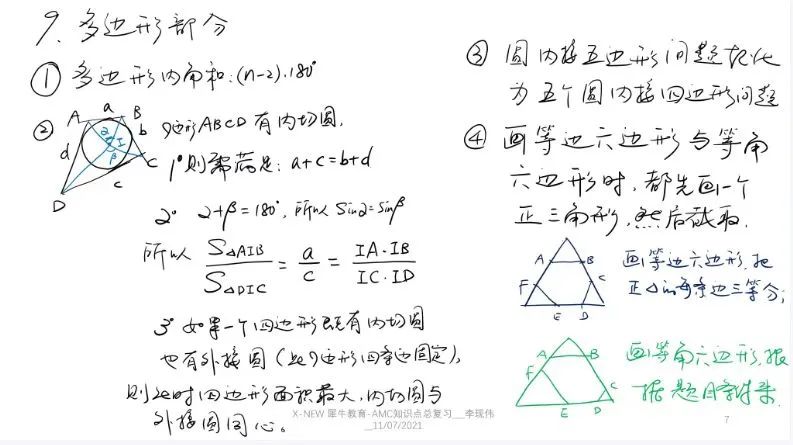 9、多边形部分
① 多边形内角和:(n-2)·180°
②
A a B
b
I
α
β
d
C
c
D
四边形ABCD有内切圆,
1° 则需满足: a+c=b+d
2° α+β=180°, 所以 sinα=sinβ
所以 S△AIB / S△DIC = a/c = IA·IB / IC·ID
3° 如果一个四边形既有内切圆
也有外接圆(此四边形四条边固定),
则此时四边形面积最大,内切圆与
外接圆同心。
③ 圆内接五边形问题转化
为五个圆内接四边形问题
④ 画等边六边形与等角
六边形时,都先画一个
正三角形,然后截取.
A B
F C
E D
画等边六边形,把
正△的每条边三等分;
A B
F C
E D
画等角六边形,根
据题目条件来.
X-NEW 犀牛教育-AMC知识点总复习__李现伟
__11/07/2021
7